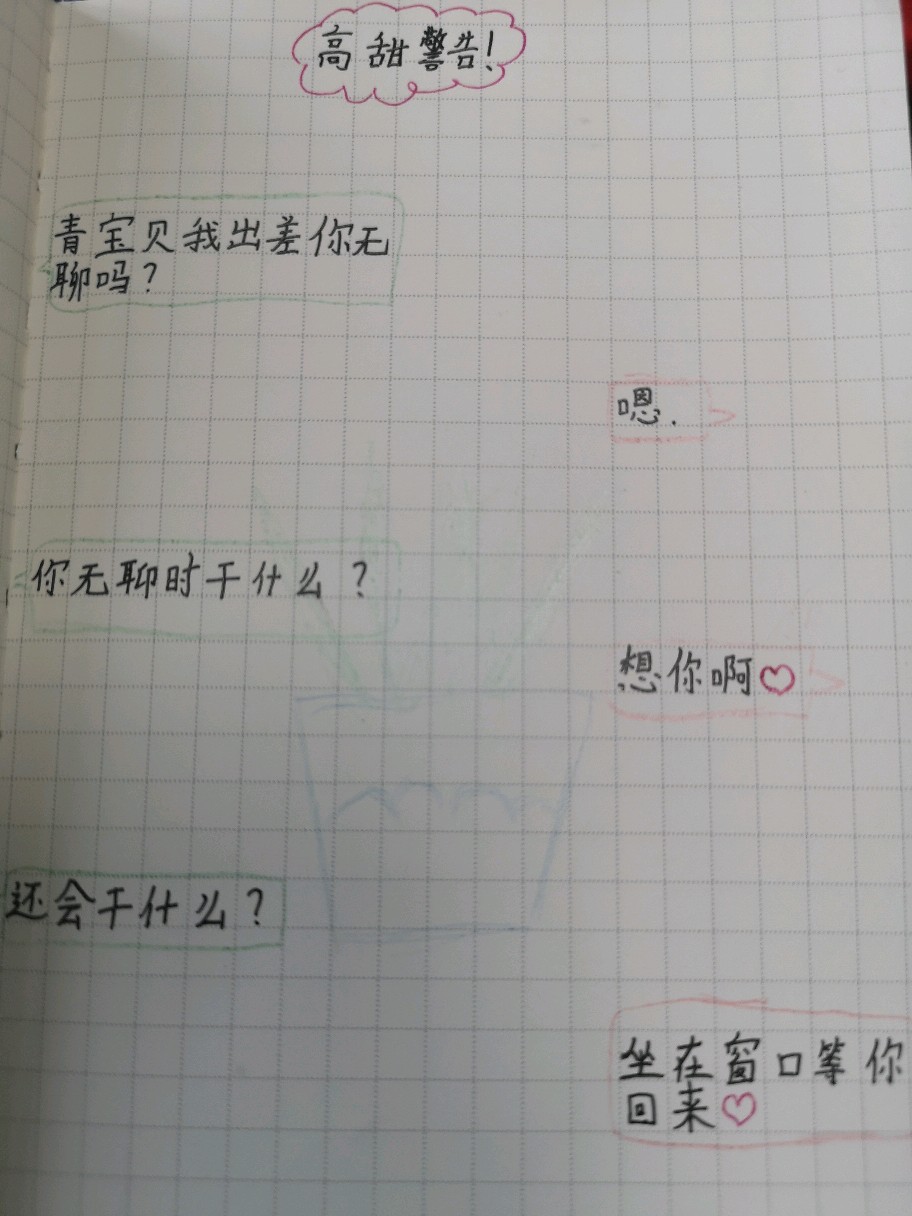 高甜警告!
青宝贝我出差你无
聊吗?
嗯.
你无聊时干什么?
想你啊♡
还会干什么?
坐在窗口等你
回来♡